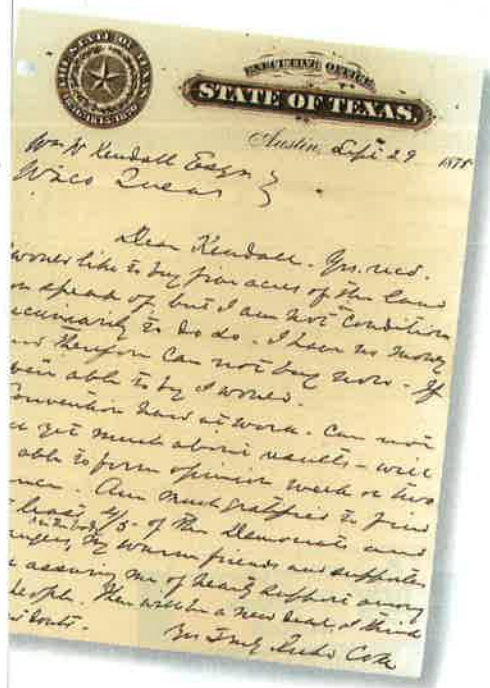 THE STATE OF TEXAS
EXECUTIVE OFFICE,
STATE OF TEXAS,
Austin, Sept 29 1875
Wm W Kendall Esqr
Waco Texas
Dear Kendall. Yrs. recd.
would like to buy five acres of the land
speak of but I am not condition
pecuniarily to do so. I have no money
and therefore can not buy now. If
were able to buy I would.
Convention hard at work. Can not
yet much about results - will
able to form opinion week or two
Am much gratified to find
least 4/5 of the Democrats and
in the body
my warm friends and supporters
assuring me of hearty support among
people. There will be a new deal I think
doubt.
Yrs Truly Richd Coke